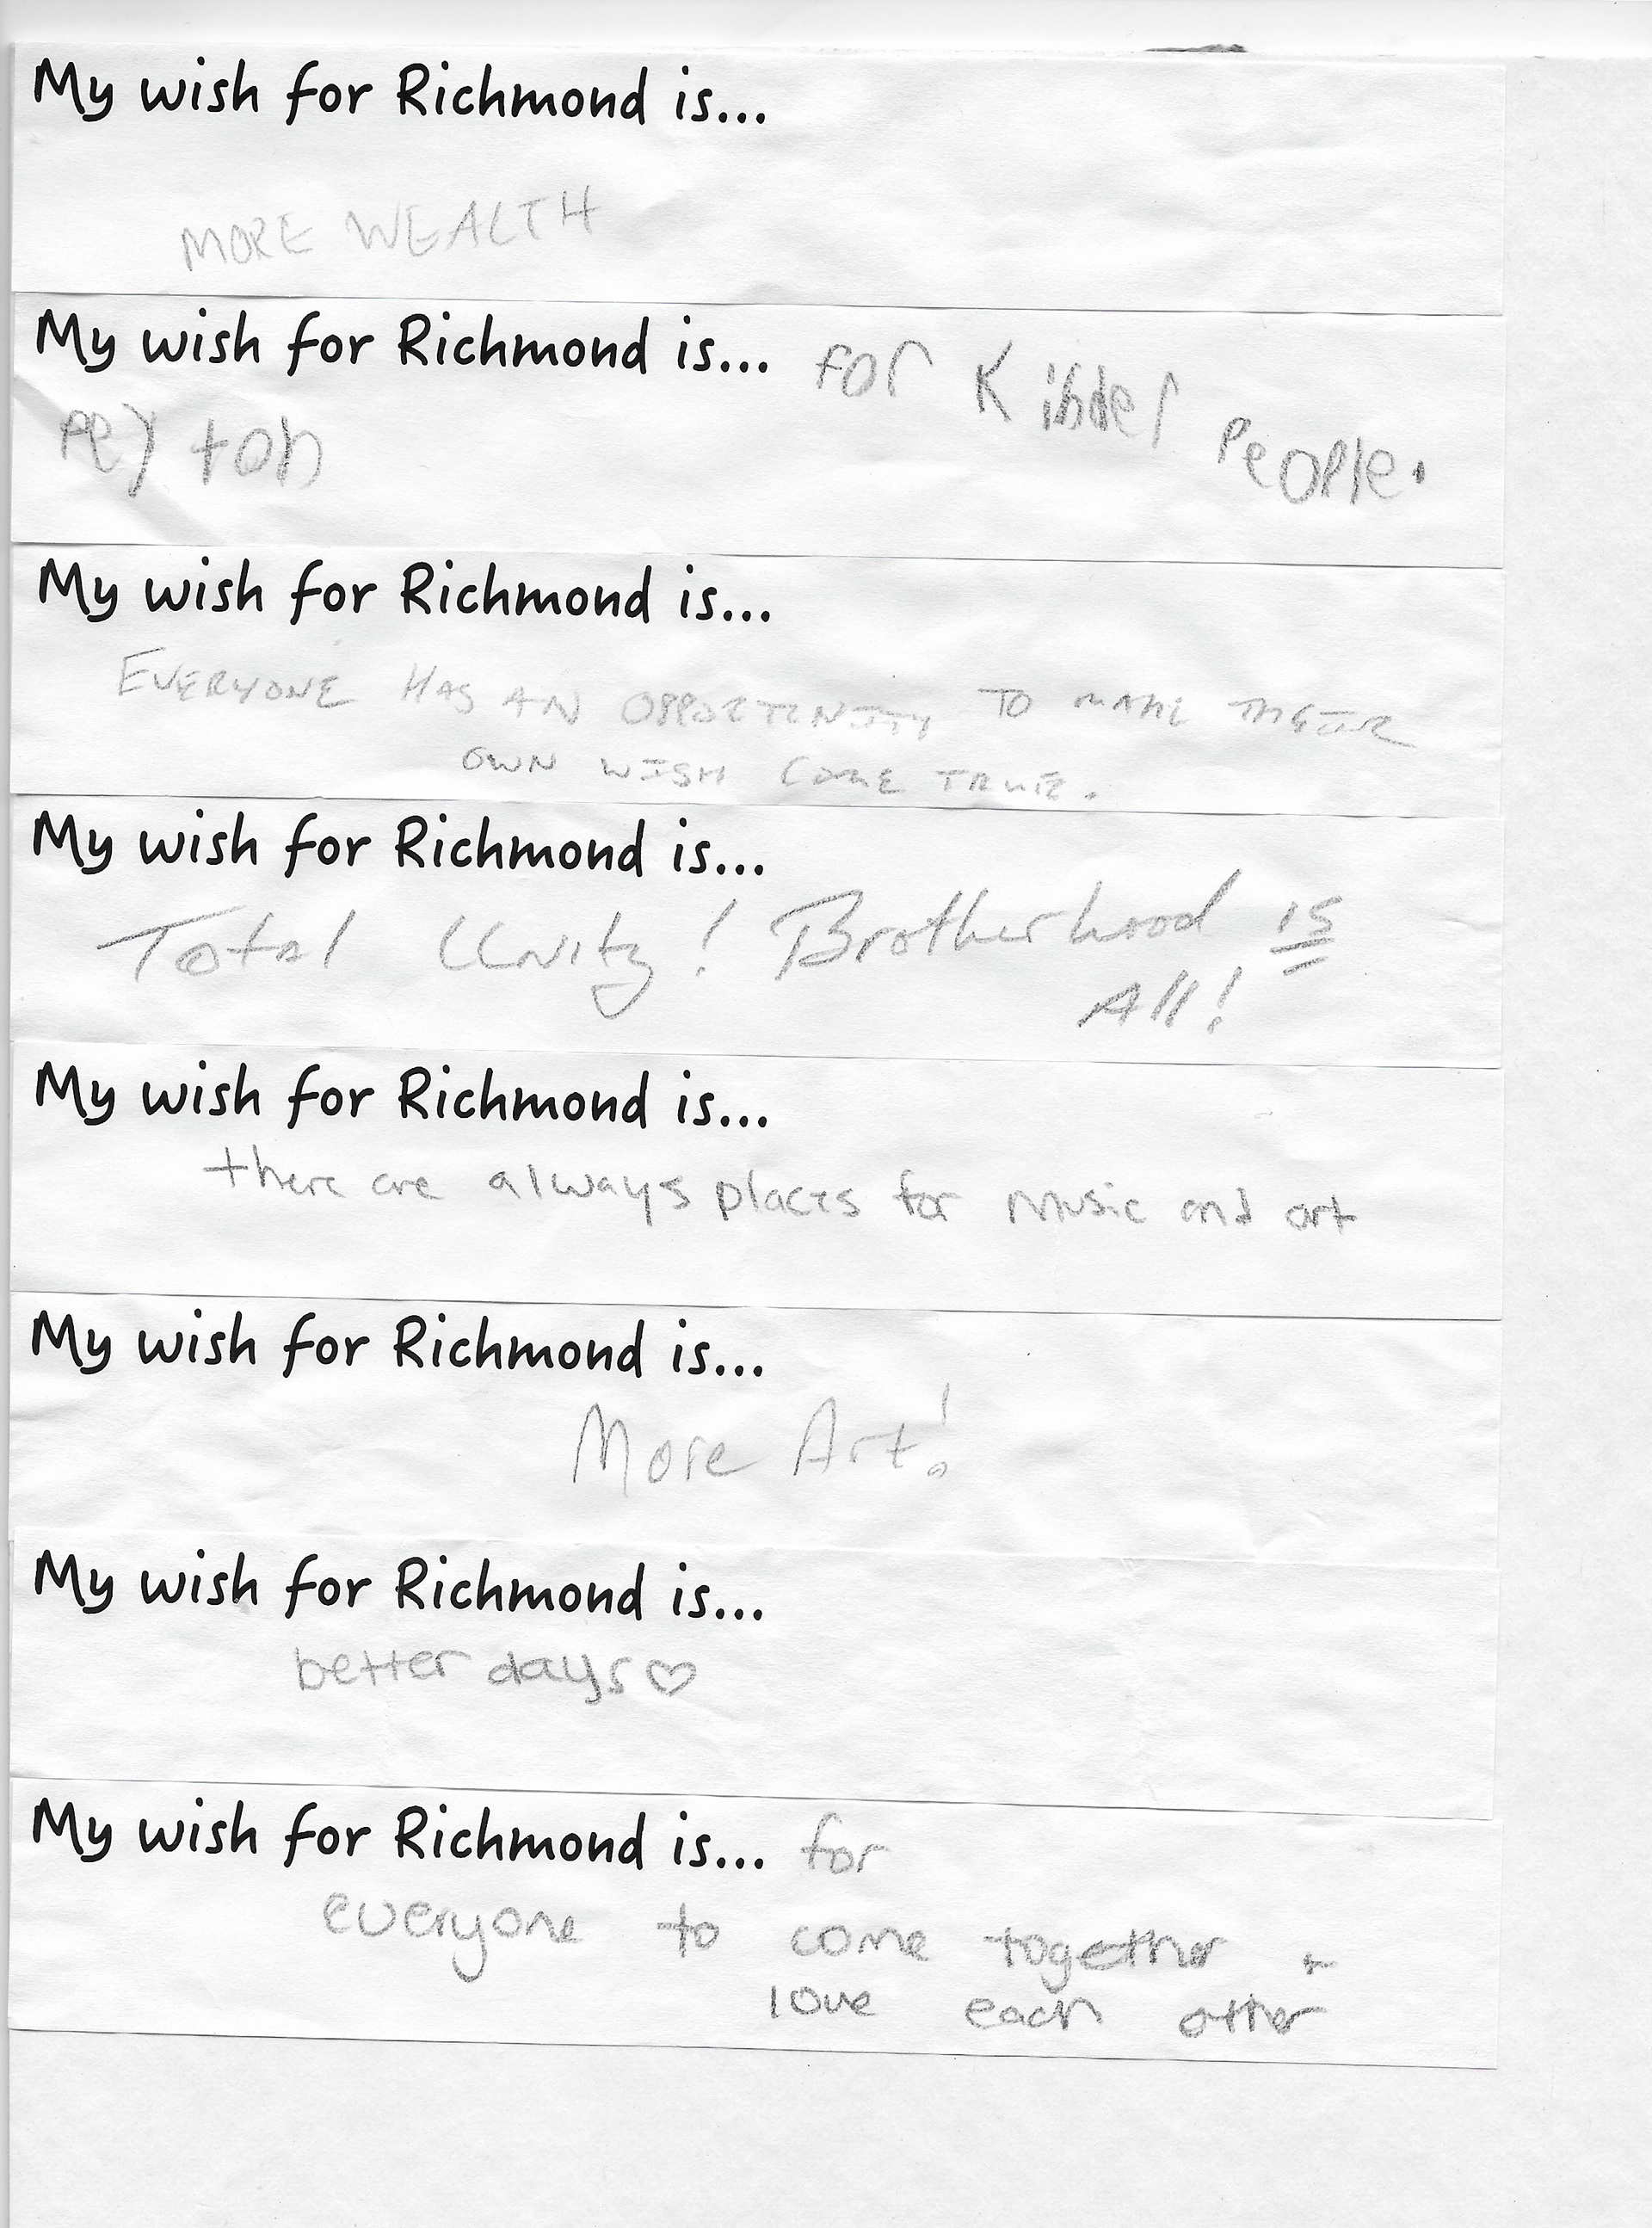 My wish for Richmond is...
MORE WEALTH
My wish for Richmond is... for Kinder People.
Peyton
My wish for Richmond is...
EVERYONE HAS AN OPPORTUNITY TO MAKE THEIR
OWN WISH COME TRUE.
My wish for Richmond is...
Total Unity! Brotherhood is
All!
My wish for Richmond is...
there are always places for music and art
My wish for Richmond is...
More Art!
My wish for Richmond is...
better days♡
My wish for Richmond is... for
everyone to come together +
love each other